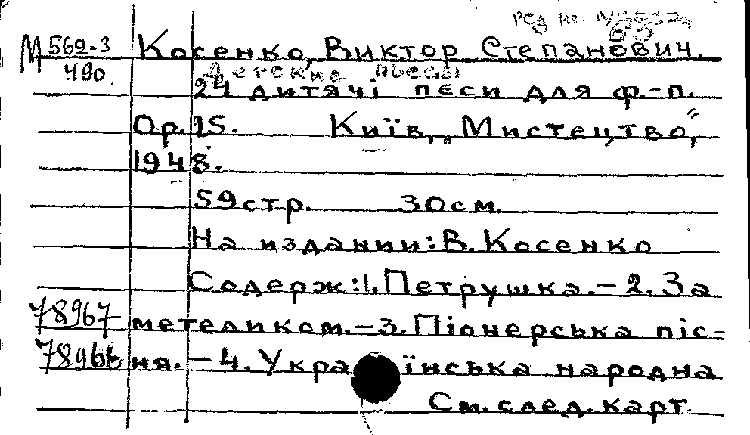 М 569-3
490.
Косенко, Виктор Степанович.
Детские пьесы
24 дитячі пєси для ф.-п.
Ор. 15. Київ, „Мистецтво",
1948.
59 стр. 30 см.
На издании: В. Косенко
Содерж: 1. Петрушка. – 2. За
78967
метеликом. – 3. Піонерська піс-
78966
ня. – 4. Українська народна
См. след. карт.